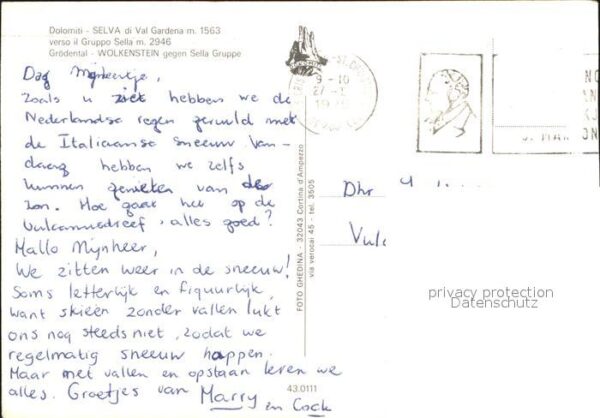 Dolomiti - SELVA di Val Gardena m. 1563
verso il Gruppo Sella m. 2946
Grödental - WOLKENSTEIN gegen Sella Gruppe
Dag Mijnheertje,
zoals u ziet hebben we de
Nederlandse regen geruild met
de Italiaanse sneeuw. Van-
daag hebben we zelfs
kunnen genieten van de
zon. Hoe gaat het op de
Vulcanusdreef, alles goed?
Hallo Mijnheer,
We zitten weer in de sneeuw!
Soms letterlijk en figuurlijk,
want skiëen zonder vallen lukt
ons nog steeds niet, zodat we
regelmatig sneeuw happen.
Maar met vallen en opstaan leren we
alles. Groetjes van Marry en Cock
43.0111
FOTO GHEDINA - 32043 Cortina d'Ampezzo
via verocai 45 - tel. 3505
9-10
Dhr
Vulc
privacy protection
Datenschutz